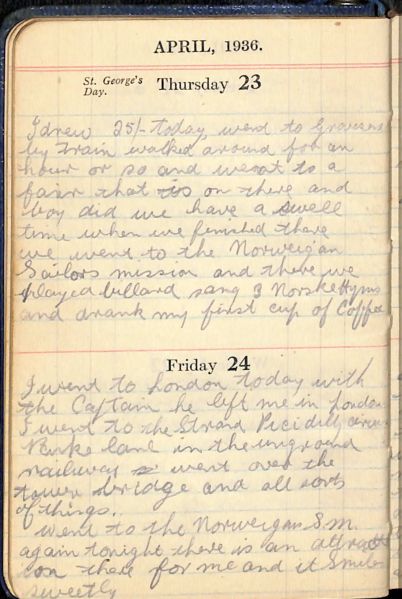 APRIL, 1936.
St. George's
Day.
Thursday 23
I drew 25/- today, went to Graves
by train walked around for an
hour or so and went to a
fair that is on there and
boy did we have a swell
time when we finished there
we went to the Norweigan
Sailors mission and there we
played billard sang 3 Norske Hyms
and drank my first cup of Coffee
Friday 24
I went to London today with
the Captain he left me in London
I went to the Strand Picidilly circus
Parke lane in the unground
railway went over the
tower bridge and all sorts
of things.
Went to the Norweigan S.M.
again tonight there is an attract
ion there for me and it smiles
sweetly